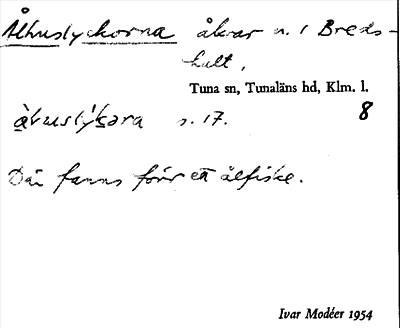 Ålhuslyckorna åkrar n. i Breds-
hult.
Tuna sn, Tunaläns hd, Klm. l.
s. 17. 8
Där fanns förr ett ålfiske.
Ivar Modéer 1954